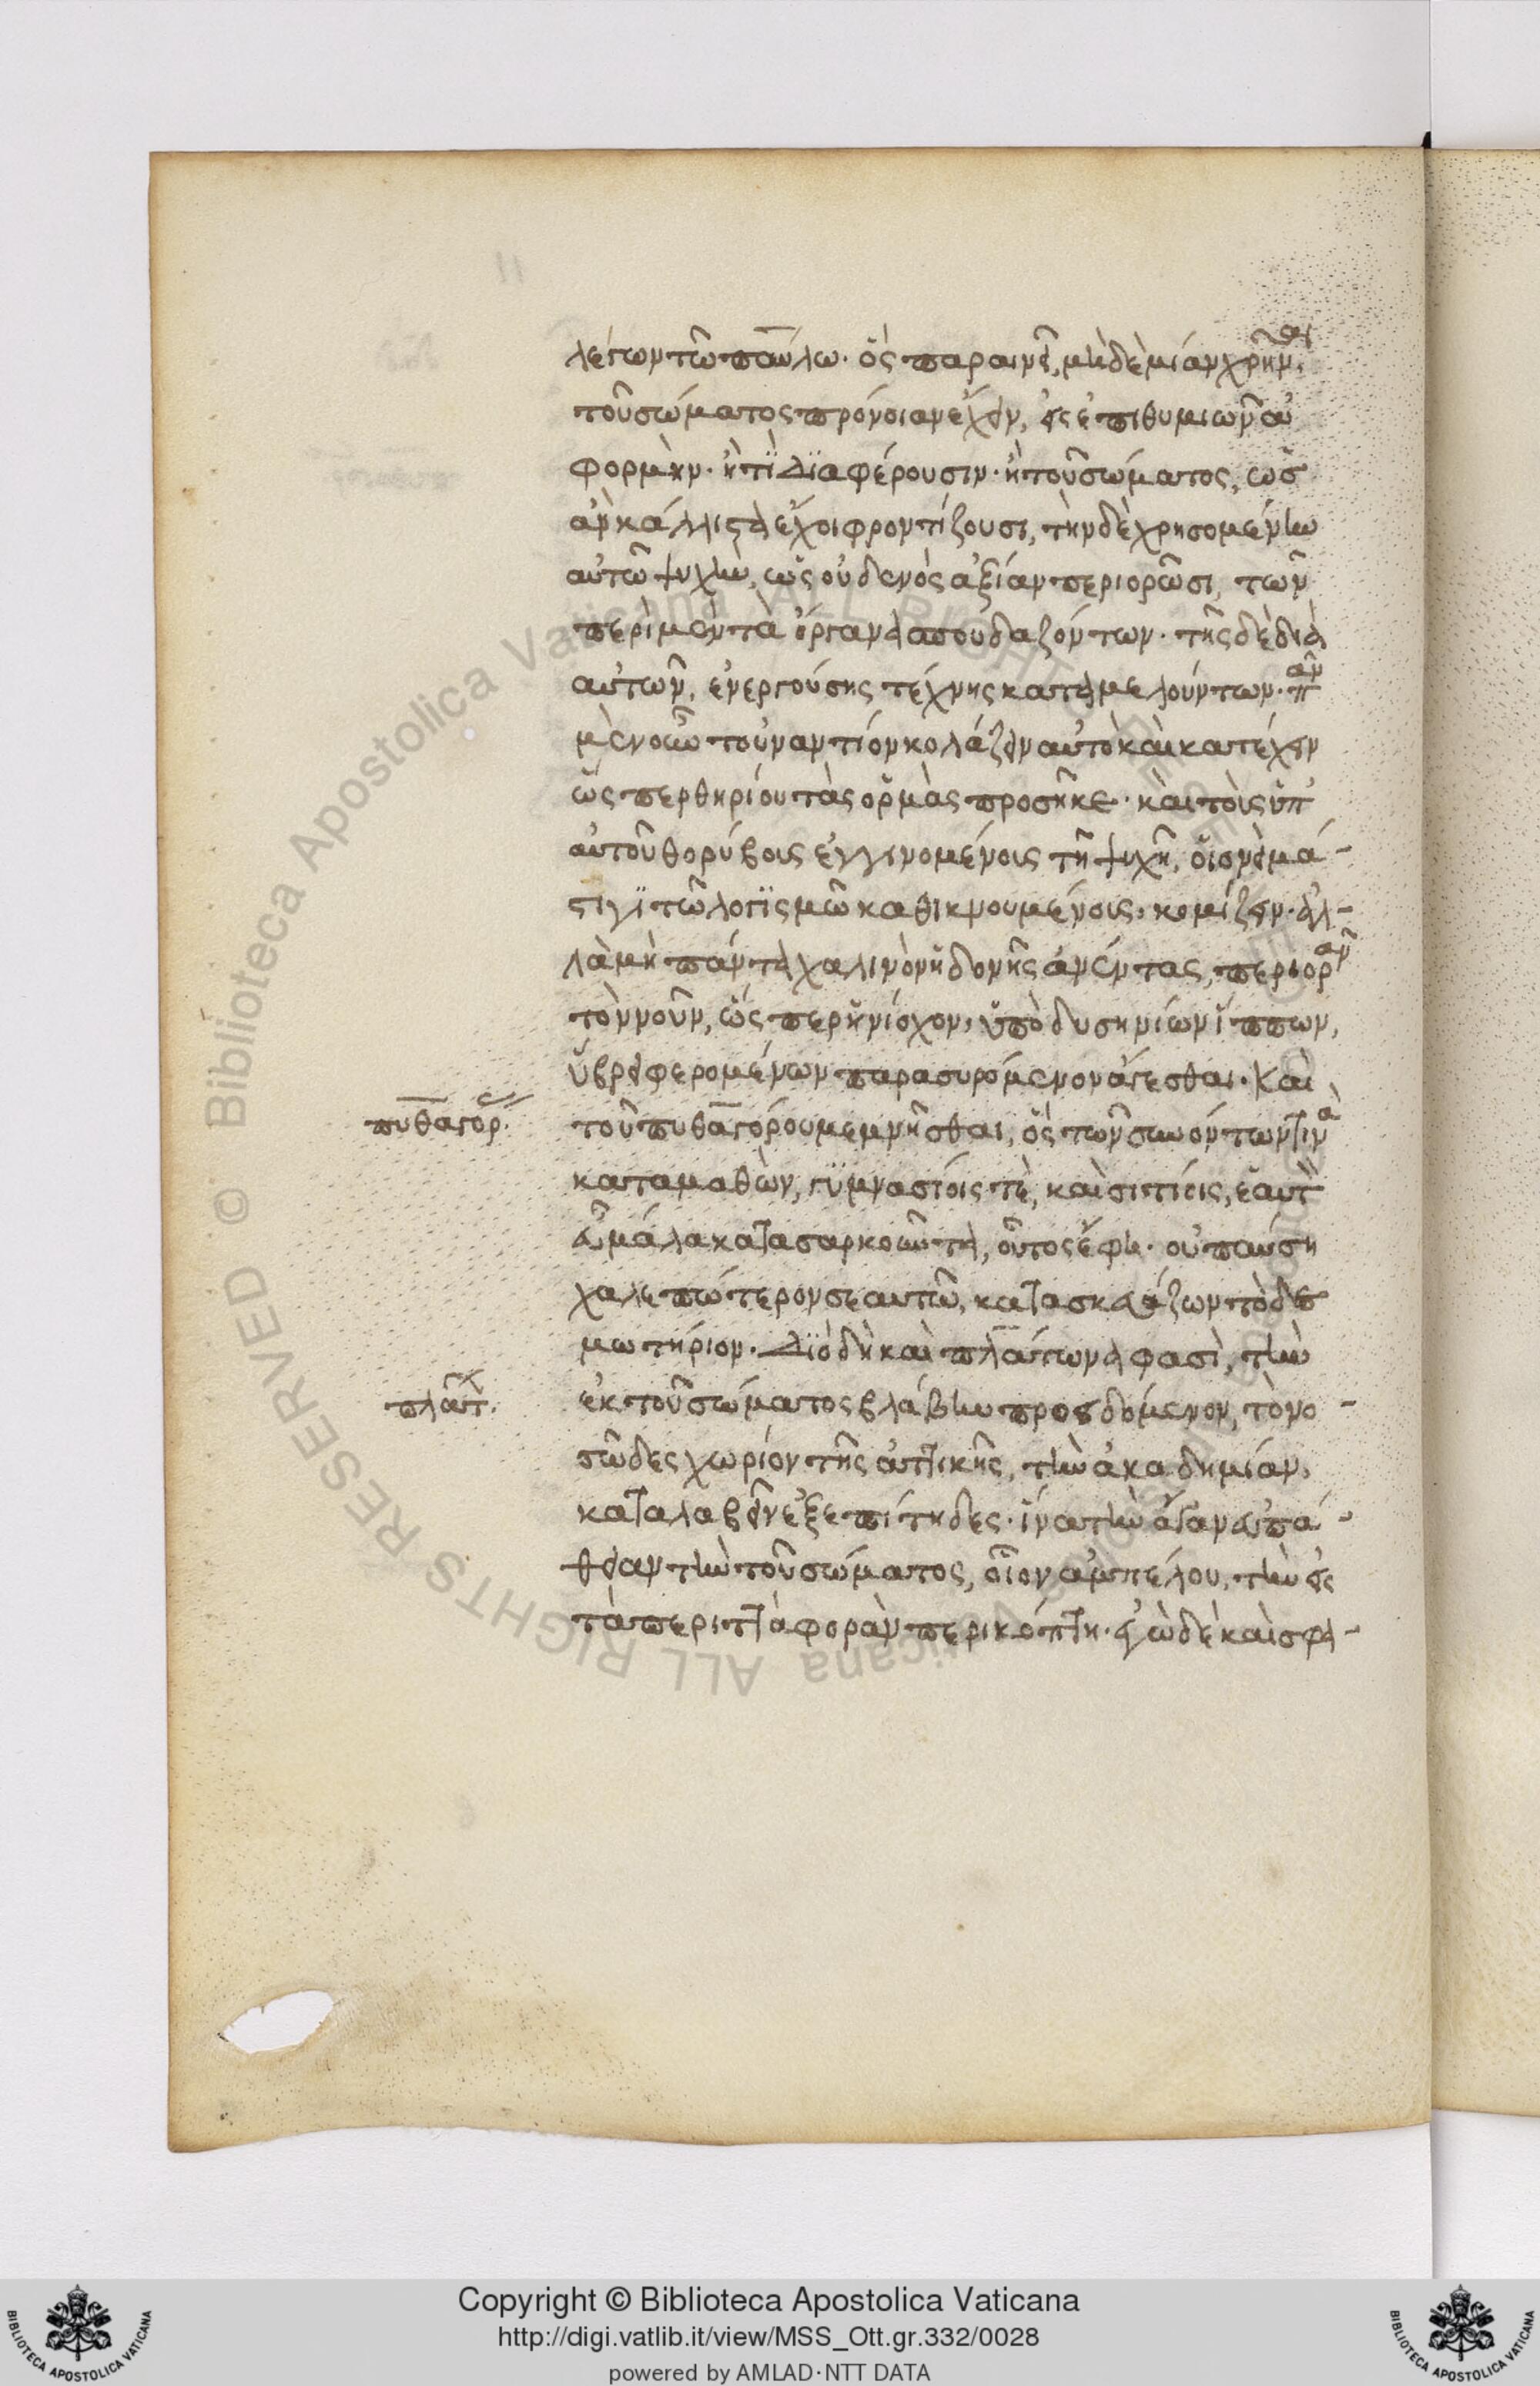 λέγων τῶ παύλω· ὃς παραινεῖ, μηδεμίαν χρῆναι
τοῦ σώματος πρόνοιαν ἔχειν, εἰς ἐπιθυμιῶν ἀ
φορμήν· ἢ τί διαφέρουσιν· οἳ τοῦ σώματος, ὡς
ἂν κάλλιστα ἔχοι φροντίζουσι, τὴν δὲ χρησομένην
αὐτῶ ψυχὴν, ὡς οὐδενὸς ἀξίαν περιορῶσι, τῶν
περὶ μὲν τὰ ὄργανα σπουδαζόντων· τῆς δὲ δι
αὐτῶν, ἐνεργούσης τέχνης καταμελούντων· πᾶν
μὲν οὖν τοὐναντίον κολάζειν αὐτὸ καὶ κατέχειν
ὥσπερ θηρίου τὰς ὁρμὰς προσῆκε· καὶ τοὺς ὑπ
αὐτοῦ θορύβοις ἐγγινομένοις τῆ ψυχῆ, οἱονεὶ μά-
στιγι τῶ λογισμῶ καθικνουμένοις, κομίζειν· ἀλ-
λὰ μὴ πάντα χαλινὸν ἡδονῆς ἀνέντας, περιορᾶν
τὸν νοῦν, ὥσπερ ἡνίοχον, ὑπὸ δυσηνίων ἵππων,
ὕβρει φερομένων παρασυρόμενον ἄγεσθαι· Καὶ
πυθαγόρ.
τοῦ πυθαγόρου μεμνῆσθαι, ὃς τῶν συνόντων τινὰ
καταμαθὼν, γυμνασίοις τὲ, καὶ σιτίοις, ἑαυτὸν
εὖ μάλα κατασαρκοῦντα, οὗτος ἔφη· οὐ παύση
χαλεπώτερον σεαυτῶ, κατασκευάζων τὸ δεσ
μωτήριον· Διὸ δὴ καὶ πλάτωνα φασὶ, τὴν
πλάτ.
ἐκ τοῦ σώματος βλάβην προειδόμενον, τὸ νο-
σῶδες χωρίον τῆς ἀττικῆς, τὴν ἀκαδημίαν,
καταλαβεῖν ἐξεπίτηδες· ἵνα τὴν ἄγαν εὐπά-
θειαν τὴν τοῦ σώματος, οἷον ἀμπέλου, τὴν εἰς
τὰ περιττὰ φορὰν περικόπτη· ἐγὼ δὲ καὶ σφα-
Copyright © Biblioteca Apostolica Vaticana
http://digi.vatlib.it/view/MSS_Ott.gr.332/0028
powered by AMLAD·NTT DATA